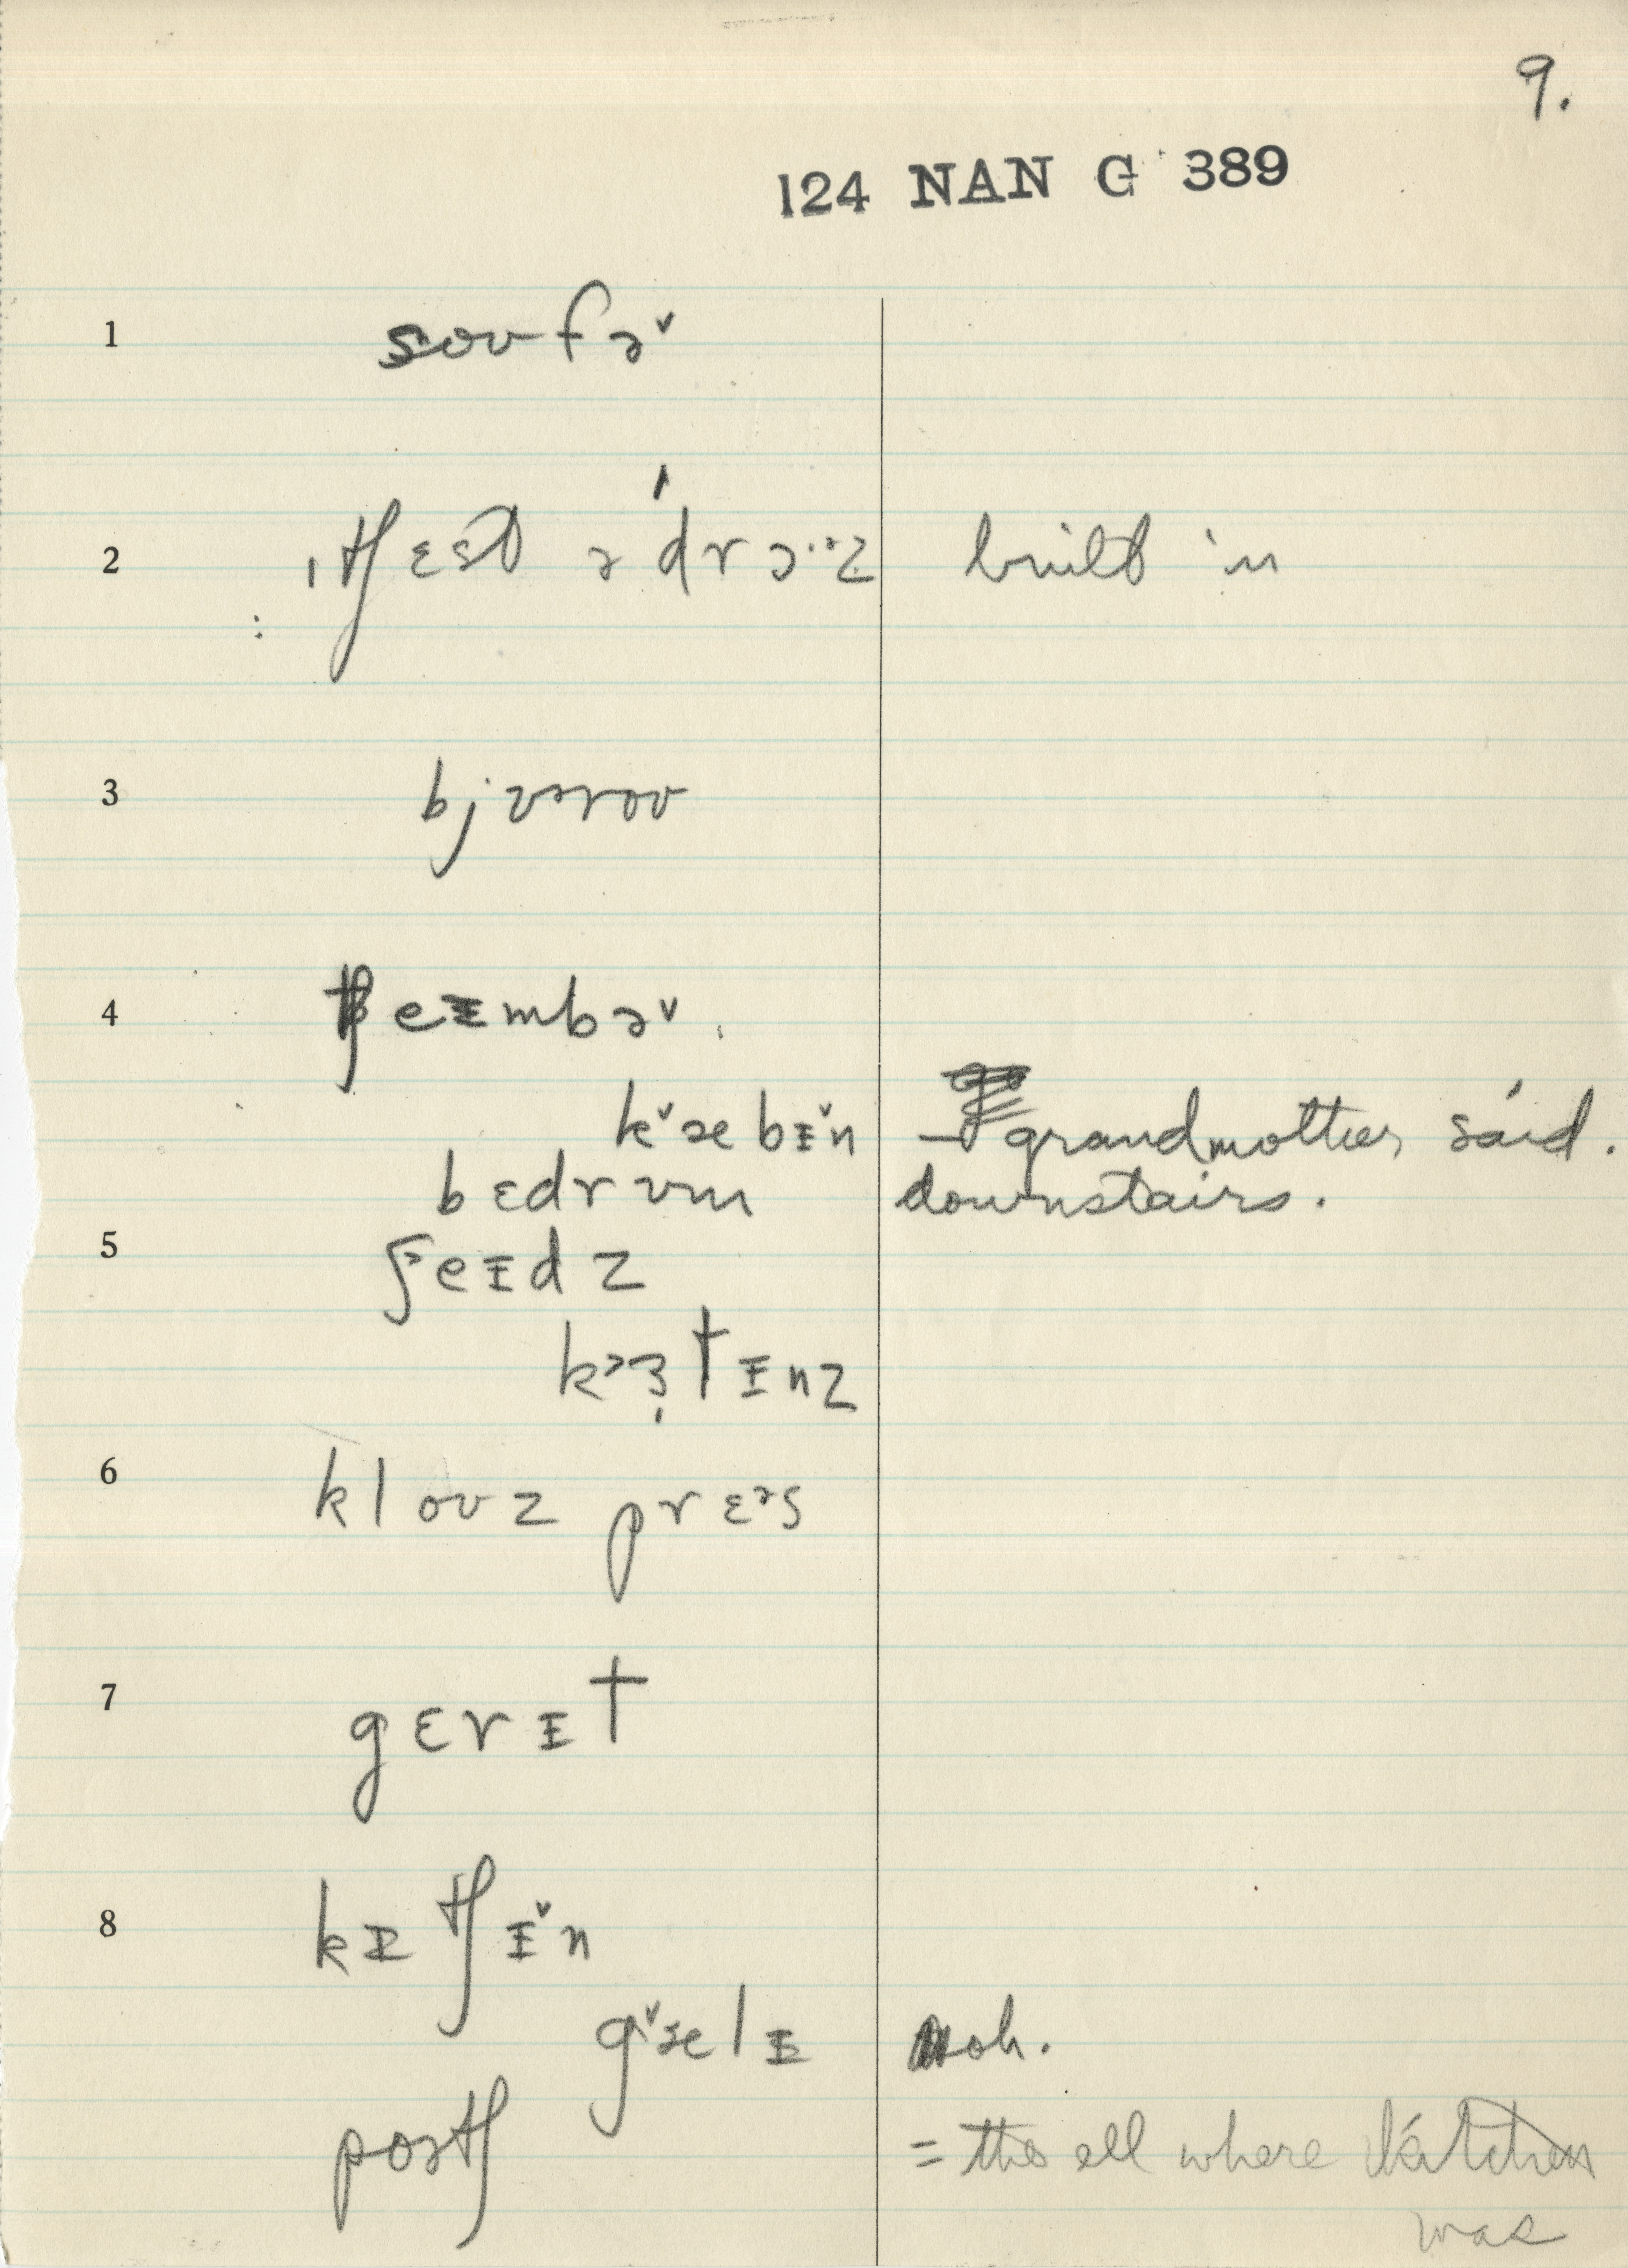 9.
124 NAN G 389
1 soʊfə˅
2 ˌtʃɛst ə ˈdrɔ·ə·z built in
3 bjʊəroʊ
4 tʃeɪmbə˅
k˅æbɪ˅n – grandmother said.
bɛdrʊm downstairs.
5 ʃeɪdz
kɜtɪnz
6 kloʊz prɛᵊs
7 gɛrɪt
8 kɪtʃɪ˅n
g˅ælɪ oh.
poətʃ = the ell where kitchen
was